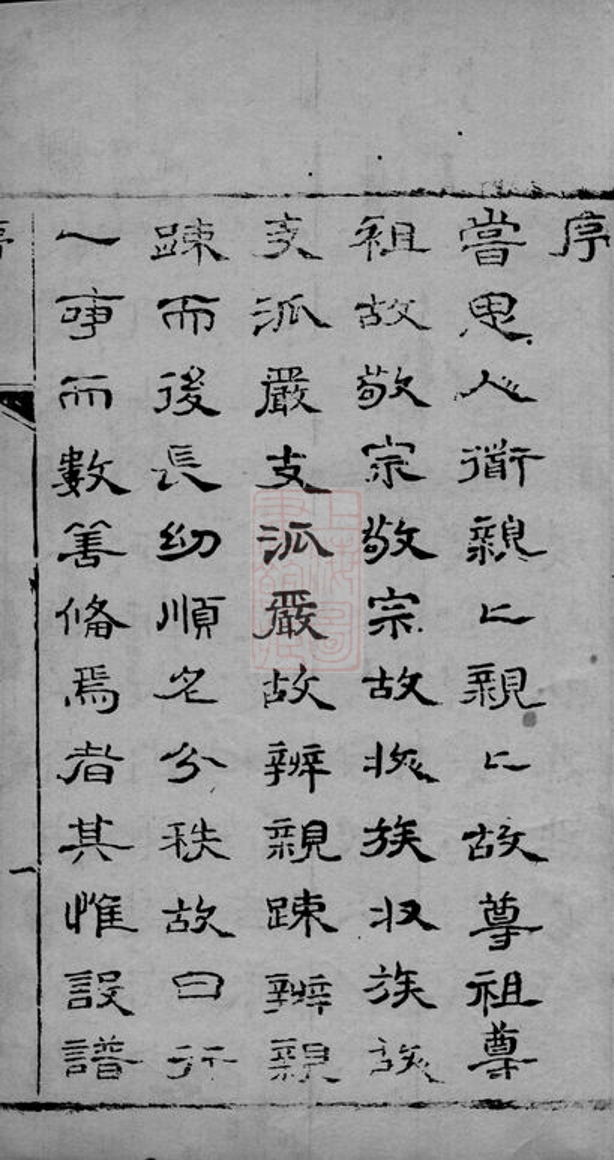 序
嘗思人衜親〻親〻故尊祖尊
祖故敬宗敬宗故收族收族故
支派嚴支派嚴故辨親踈辨親
踈而後長幼順名分秩故曰行
一事而數善備焉者其惟設譜
序
一